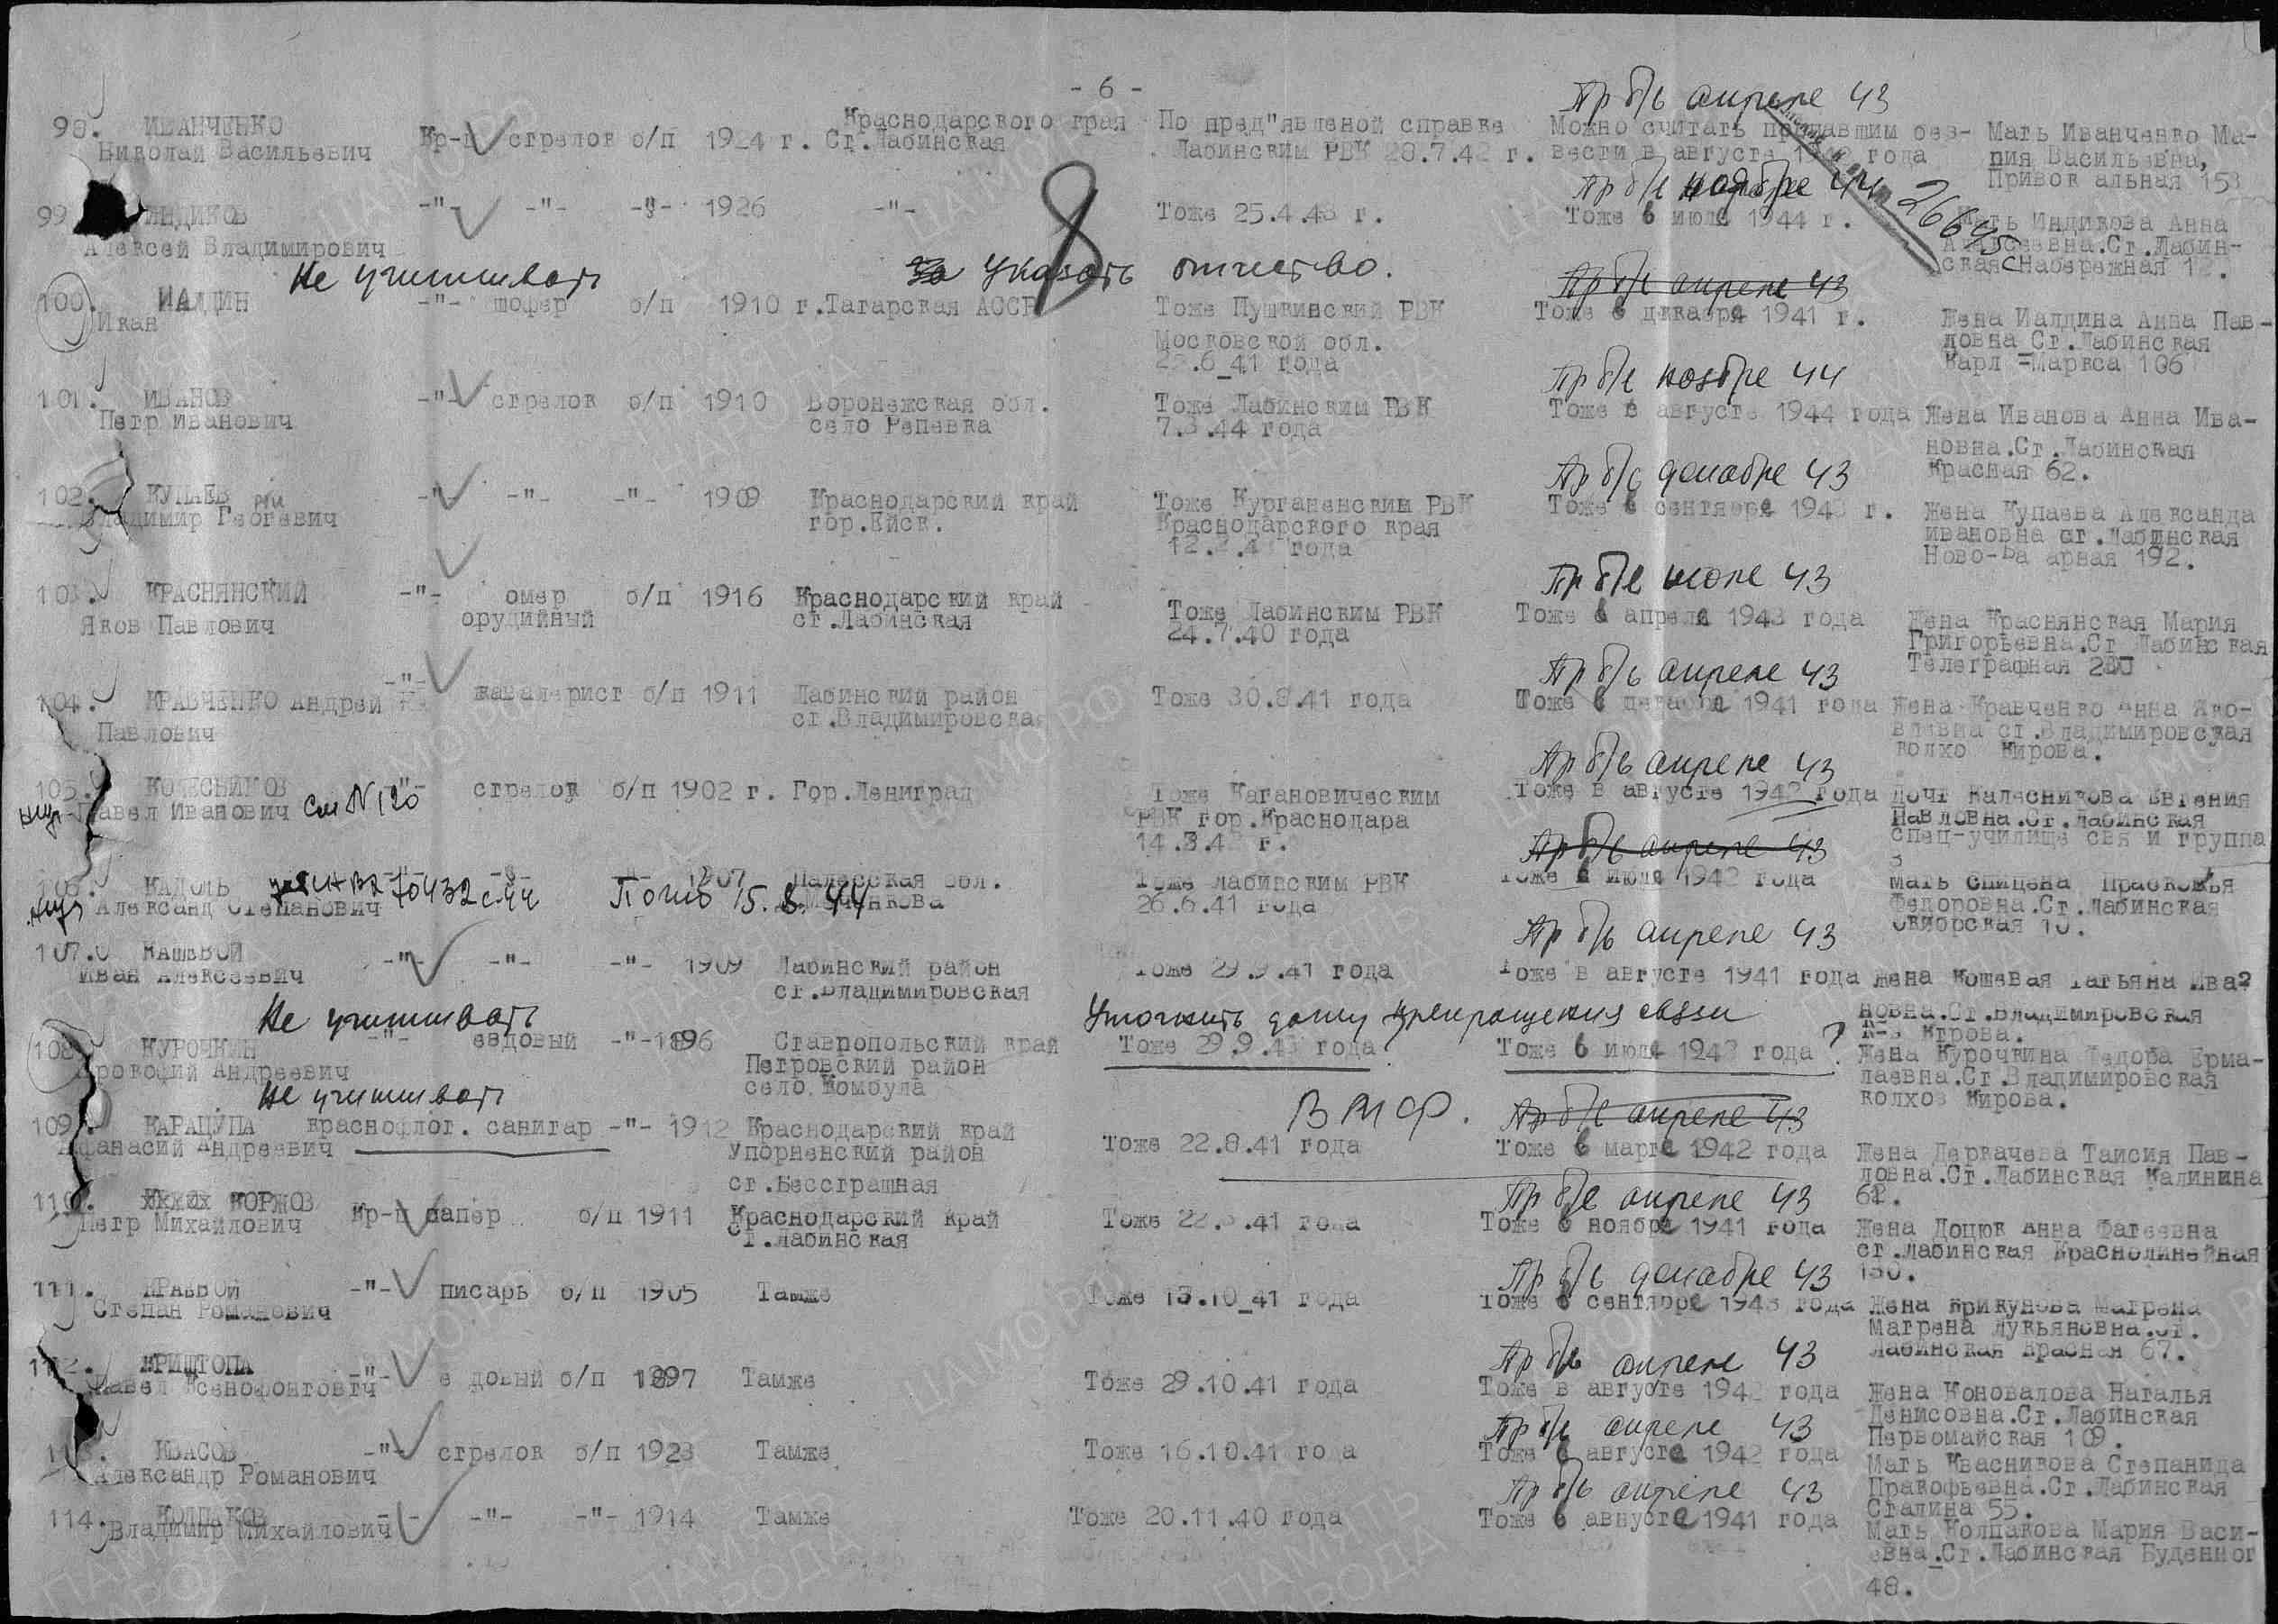 - 6 -
Пр б/в апреле 43
98. ИВАНЧЕНКО
Николай Васильевич
Кр-ц стрелок б/п 1924 г. Краснодарского края
Ст.Лабинская
По пред"явленой справке
Лабинским РВК 28.7.42 г.
Можно считать пропавшим без-
вести в августе 1942 года
Мать Иванченко Ма-
рия Васильевна,
Привокзальная 153
Пр б/в ноябре 44
26645
99. ИНДИКОВ
Алексей Владимирович
-"- -"- -"- 1926 -"-
Тоже 25.4.43 г.
Тоже в июле 1944 г.
Мать Индикова Анна
Алексеевна.Ст.Лабин-
ская Набережная 12.
8
Не учитывать
указать отчество.
Пр б/в апреле 43
100. ИАЛДИН
Икан
-"- шофер б/п 1910 г.Татарская АССР
Тоже Пушкинский РВК
Московской обл.
22.6_41 года
Тоже в декабре 1941 г.
Жена Иалдина Анна Пав-
ловна Ст.Лабинская
Карл =Маркса 106
Пр б/в ноябре 44
101. ИВАНОВ
Петр Иванович
-"- стрелок б/п 1910 Воронежская обл.
село Репевка
Тоже Лабинским РВК
7.3.44 года
Тоже в августе 1944 года
Жена Иванова Анна Ива-
новна.Ст.Лабинская
Красная 62.
Пр б/в декабре 43
102. КУПАЕВ
Владимир Геогевич
-"- -"- -"- 1909 Краснодарский край
гор.Ейск.
Тоже Курганенским РВК
Краснодарского края
года
Тоже в сентябре 1943 г.
Жена Купаева Александа
Ивановна ст.Лабинская
192.
Пр б/в июле 43
103. КРАСНЯНСКИЙ
Яков Павлович
-"- омер
орудийный
б/п 1916 Краснодарский край
ст.Лабинская
Тоже Лабинским РВК
24.7.40 года
Тоже в апреле 1943 года
Жена Краснянская Мария
Григорьевна.Ст Лабинская
Телеграфная
Пр б/в апреле 43
104. КРАВЧЕНКО Андрей
Павлович
-"- кавалерист б/п 1911 Лабинский район
ст.Владимировская
Тоже 30.8.41 года
Тоже в декабре 1941 года
Жена Кравченко Анна Яко-
влевна ст.Владимировская
колхо Кирова.
Пр б/в апреле 43
105. КОЛЕСНИКОВ
Павел Иванович см N 120
-"- стрелок б/п 1902 г. Гор.Лениград
Тоже Кагановическим
РВК гор.Краснодара
14.3.4 г.
Тоже в августе 1942 года
Дочь Калесникова Евгения
Павловна.Ст.Лабинская
спец-училище свя и группа
3
Пр б/в апреле 43
106. КАДОЛЬ
Александ Степанович
70432 с.44
Погиб 15.8.44
1907 обл.
Тоже Лабинским РВК
26.6.41 года
Тоже в июле 1942 года
Мать Спицена Прасковья
Федоровна.Ст.Лабинская
10.
Пр б/в апреле 43
107. КАШЕВОЙ
Иван Алексеевич
-"- -"- -"- 1909 Лабинский район
ст.Владимировская
Тоже 29.9.41 года
Тоже в августе 1941 года
Жена Кошевая Татьяна Ива?
новна.Ст.Владимировская
К-з Кирова.
Не учитывать
Уточнить дату прекращения связи
108. КУРОЧКИН
Прокофий Андреевич
-"- ездовый -"- 1896 Ставропольский край
Петровский район
село Комбула
Тоже 29.9.43 года
Тоже в июле 1942 года ?
Жена Курочкина Федора Ерма-
лаевна.Ст.Владимировская
колхоз Кирова.
Не учитывать
ВМФ.
Пр б/в апреле 43
109. КАРАЦУПА
Афанасий Андреевич
краснофлот. санитар -"- 1912 Краснодарский край
Упорненский район
ст.Бесстрашная
Тоже 22.8.41 года
Тоже в марте 1942 года
Жена Деркачева Таисия Пав-
ловна.Ст.Лабинская Калинина
62.
Пр б/в апреле 43
110. КОРЖОВ
Петр Михайлович
Кр-ц сапер б/п 1911 Краснодарский край
Ст.Лабинская
Тоже 22. .41 года
Тоже в ноябре 1941 года
Жена Доцюк Анна Фатеевна
ст.Лабинская Краснолинейная
130.
Пр б/в декабре 43
111. КРАВВОЙ
Степан Романович
-"- писарь б/п 1905 Тамже
Тоже 13.10_41 года
Тоже в сентябре 1943 года
Жена Крикунова Матрена
Матрена Лукьяновна.Ст.
Лабинская Красная 67.
Пр б/в апреле 43
112. КРИШТОПА
Павел Ксенофонтович
-"- е довый б/п 1897 Тамже
Тоже 29.10.41 года
Тоже в августе 1942 года
Жена Коновалова Наталья
Денисовна.Ст.Лабинская
Первомайская 109.
Пр б/в апреле 43
113. КВАСОВ
Александр Романович
-"- стрелок б/п 1923 Тамже
Тоже 16.10.41 года
Тоже в августе 1942 года
Мать Кваснивова Степанида
Пракофьевна.Ст.Лабинская
Сталина 55.
Пр б/в апреле 43
114. КОЛПАКОВ
Владимир Михайлович
-"- -"- -"- 1914 Тамже
Тоже 20.11.40 года
Тоже в августе 1941 года
Мать Колпакова Мария Васи-
евна_Ст.Лабинская Буденног
48.